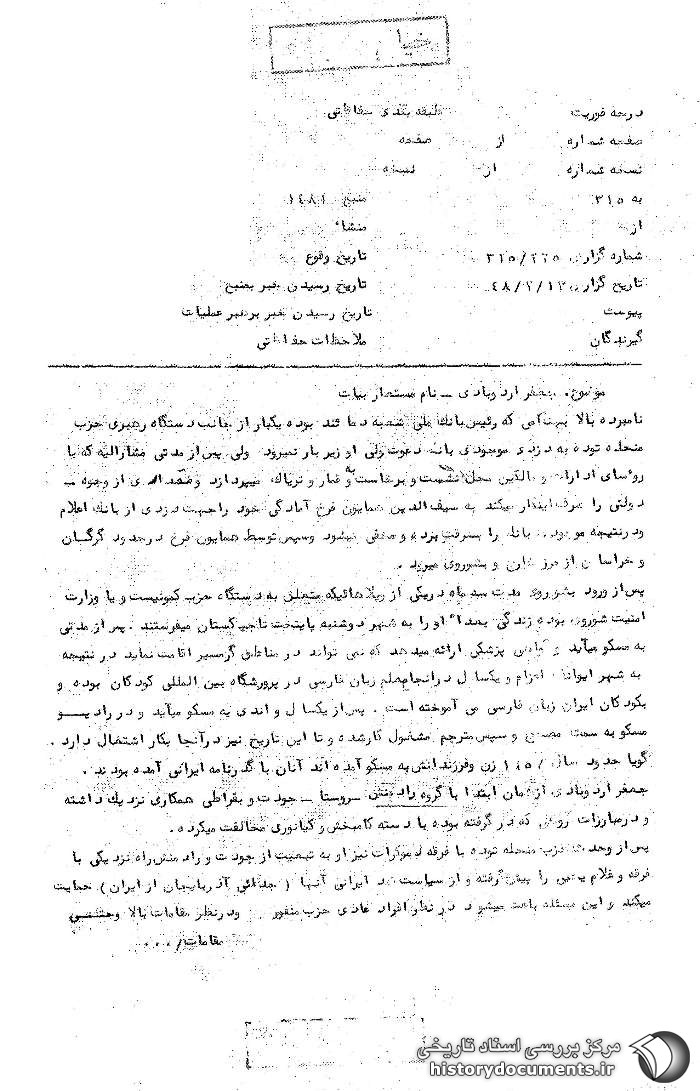 خیا
درجه فوریت طبقه بندی حفاظتی
صفحه شماره از صفحه
نسخه شماره از نسخه
به ۳۱۵ منبع ۱٤۸۱
از منشاء
شماره گزارش تاریخ وقوع
تاریخ گزارش تاریخ رسیدن خبر بمنبع
پیوست تاریخ رسیدن خبر برهبر عملیات
گیرندگان ملاحظات حفاظتی
موضوع: جعفر اردوبادی ــ نام مستعار بیات
نامبرده بالا که رئیس بانك ملی شعبه بوده یکبار از جانب دستگاه رهبری حزب
منحله توده به دزدی موجودی بانك دعوت ولی او زیر بار نمیرود ولی پس از مدتی مشارالیه که با
روسای ادارات و مالکین محل نشست و برخاست و قمار و تریاك میپردازد و از وجوه ــ
دولتی را میکند به سیف الدین همایون فرخ آمادگی خود را جهت دزدی از بانك اعلام
و در نتیجه موجودی بانك را بسرقت برده و مخفی میشود و سپس توسط همایون فرخ در حدود گرگان
و خراسان از مرز خارج و بشوروی میرود .
پس از ورود بشوروی مدت سه ماه در یکی از ویلاهائیکه متعلق به دستگاه حزب کمونیست و یا وزارت
امنیت شوروی بوده زندگی بعداً او را به شهر دوشنبه پایتخت تاجیکستان میفرستند . پس از مدتی
به مسکو میآید و گواهی پزشکی ارائه میدهد که نمی تواند در مناطق گرمسیر اقامت نماید در نتیجه
به شهر ایوانا اعزام و یکسال در آنجا معلم زبان فارسی در پرورشگاه بین المللی کودکان بوده و
بکودکان ایران زبان فارسی می آموخته است . پس از یکسال و اندی به مسکو میآید و در رادیــو
مسکو به سمت مصحح و سپس مترجم مشغول کار شده و تا این تاریخ نیز در آنجا بکار اشتغال دارد .
گویا حدود سال زن و فرزندانش به مسکو آمده اند آنان با گذرنامه ایرانی آمده بودند .
جعفر اردوبادی از همان ابتدا با گروه رادمنش ــ روستا ــ جودت و بقراطی همکاری نزدیك داشته
و در مبارزات روی که در گرفته بوده با دسته کامبخش و کیانوری مخالفت میکرده .
پس از وحدت حزب منحله توده با فرقه دموکرات نیز او به تبعیت از جودت و رادمنش راه نزدیکی با
فرقه و غلام یحیی را پیش گرفته و از سیاست ضد ایرانی آنها ( جدائی آذربایجان از ایران ) حمایت
میکند و این مسئله باعث میشود در نظر افراد عادی حزب منفور و در نظر مقامات بالا و حتــی
مقامات/ ...
مرکز بررسی اسناد تاریخی
historydocuments.ir